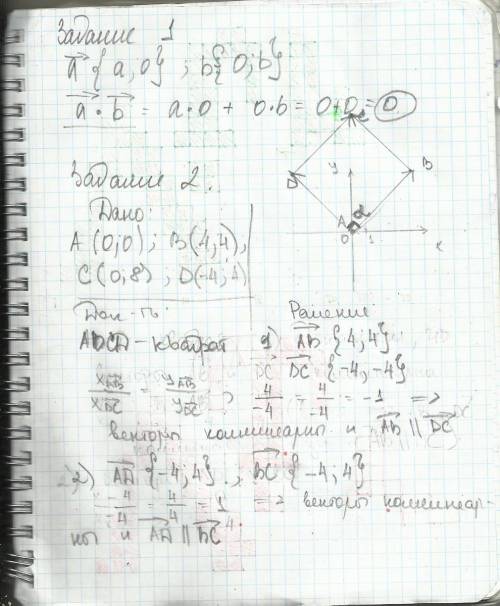 Задание 1
a {a, 0} ; b{0; b}
a • b = a•0 + 0•b = 0+0 = 0
Задание 2.
Дано:
A (0;0) ; B(4;4),
C(0,8) ; D(-4;4)
Док-ть:
ABCD - квадрат
D
y
B
A
α
0
1
x
Решение
1) AB {4; 4}
DC DC {-4; -4}
xAB / xDC = yAB / yDC ; 4/-4 = 4/-4 = -1 =>
векторы коллинеарны и AB || DC
2) AD {-4; 4} ; BC {-4; 4}
-4/-4 = 4/4 = 1 => векторы коллинеар-
ны и AD || BC